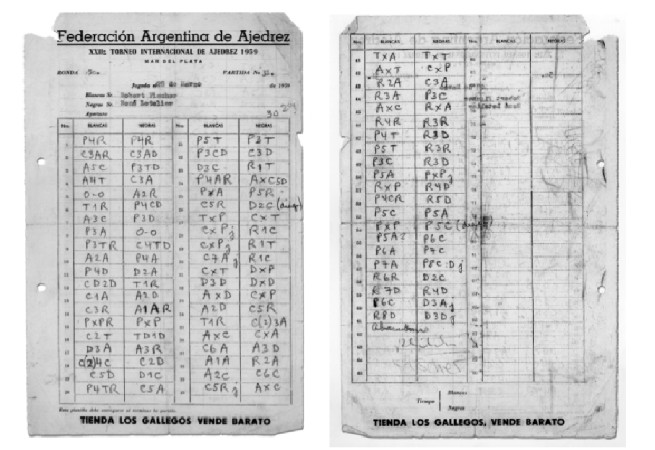 Federación Argentina de Ajedrez
XXII: TORNEO INTERNACIONAL DE AJEDREZ 1959
MAR DEL PLATA
RONDA PARTIDA No.
Jugada el de Marzo de 1959
Blancas Sr. Robert Fischer
Negras Sr. René Letelier
Apertura
Nros. BLANCAS NEGRAS Nros. BLANCAS NEGRAS
P4R P4R P5T P3T
C3AR C3AD P3CD C3D
A5C P3TD D3C R1T
A4T C3A P4AR AxC5D
0-0 A2R PxA P5R
T1R P4CD C5R D2C
A3C P3D TxP CxT
P3A 0-0 CxPj R1C
P3TR C4TD CxPj R2T
A2A P4A C7Aj R1C
P4D D2A CxT DxP
CD2D T1R D3D DxD
C1A A2D AxD CxP
C3R A1AR A2D C5R
PxPR PxP T1R C(2)3A
C2T TD1D AxC CxA
D3A A3R C6A A3D
C(2)4C C2D A1A R2A
C5D D1C A2C C6C
P4TR C5A C5Rj AxC
Esta planilla debe entregarse al terminar la partida
TIENDA LOS GALLEGOS VENDE BARATO
Nros. BLANCAS NEGRAS Nros. BLANCAS NEGRAS
TxA TxT
AxT CxP
R2A C3A
R3A P3C
AxC RxA
R4R R3R
P4T R3D
P5T R3R
P3C R3D
P5A PxPj
RxP R4D
P4CR R5D
P5C P5A
PxP P5C
P5A P6C
P6A P7C
P7A P8C=Dj
R6R D2C
R7D R4D
P6C D3Aj
R8D D3Dj
Abandonan
Tiempo Blancas
Negras
TIENDA LOS GALLEGOS, VENDE BARATO